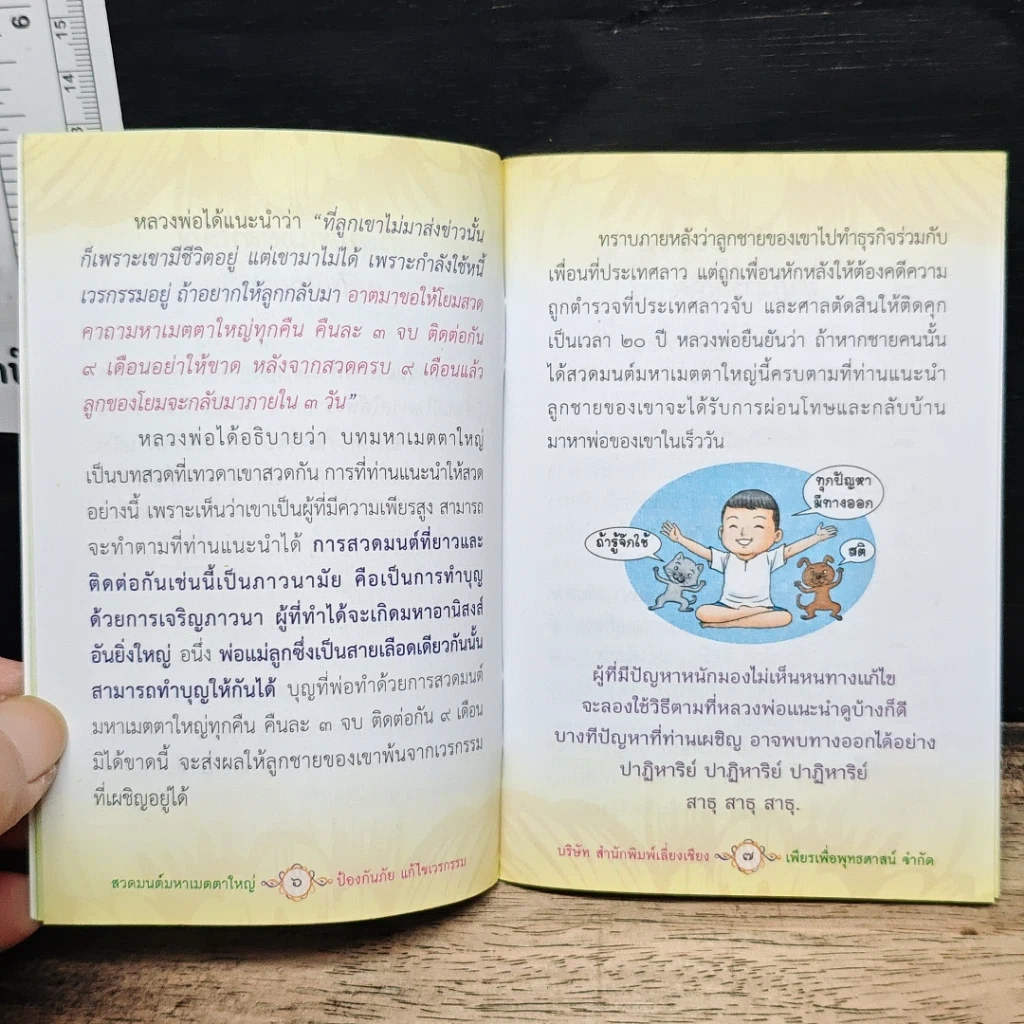 6
15
14
หลวงพ่อได้แนะนำว่า “ที่ลูกเขาไม่มาส่งข่าวนั้น
ก็เพราะเขามีชีวิตอยู่ แต่เขามาไม่ได้ เพราะกำลังใช้หนี้
เวรกรรมอยู่ ถ้าอยากให้ลูกกลับมา อาตมาขอให้โยมสวด
คาถามหาเมตตาใหญ่ทุกคืน คืนละ ๓ จบ ติดต่อกัน
๙ เดือนอย่าให้ขาด หลังจากสวดครบ ๙ เดือนแล้ว
ลูกของโยมจะกลับมาภายใน ๓ วัน”
หลวงพ่อได้อธิบายว่า บทมหาเมตตาใหญ่
เป็นบทสวดที่เทวดาเขาสวดกัน การที่ท่านแนะนำให้สวด
อย่างนี้ เพราะเห็นว่าเขาเป็นผู้ที่มีความเพียรสูง สามารถ
จะทำตามที่ท่านแนะนำได้ การสวดมนต์ที่ยาวและ
ติดต่อกันเช่นนี้เป็นภาวนามัย คือเป็นการทำบุญ
ด้วยการเจริญภาวนา ผู้ที่ทำได้จะเกิดมหาอานิสงส์
อันยิ่งใหญ่ อนึ่ง พ่อแม่ลูกซึ่งเป็นสายเลือดเดียวกันนั้น
สามารถทำบุญให้กันได้ บุญที่พ่อทำด้วยการสวดมนต์
มหาเมตตาใหญ่ทุกคืน คืนละ ๓ จบ ติดต่อกัน ๙ เดือน
มิได้ขาดนี้ จะส่งผลให้ลูกชายของเขาพ้นจากเวรกรรม
ที่เผชิญอยู่ได้
สวดมนต์มหาเมตตาใหญ่ ๖ ป้องกันภัย แก้ไขเวรกรรม
ทราบภายหลังว่าลูกชายของเขาไปทำธุรกิจร่วมกับ
เพื่อนที่ประเทศลาว แต่ถูกเพื่อนหักหลังให้ต้องคดีความ
ถูกตำรวจที่ประเทศลาวจับ และศาลตัดสินให้ติดคุก
เป็นเวลา ๒๐ ปี หลวงพ่อยืนยันว่า ถ้าหากชายคนนั้น
ได้สวดมนต์มหาเมตตาใหญ่นี้ครบตามที่ท่านแนะนำ
ลูกชายของเขาจะได้รับการผ่อนโทษและกลับบ้าน
มาหาพ่อของเขาในเร็ววัน
ทุกปัญหา
มีทางออก
ถ้ารู้จักใช้
สติ
ผู้ที่มีปัญหาหนักมองไม่เห็นหนทางแก้ไข
จะลองใช้วิธีตามที่หลวงพ่อแนะนำดูบ้างก็ดี
บางทีปัญหาที่ท่านเผชิญ อาจพบทางออกได้อย่าง
ปาฏิหาริย์ ปาฏิหาริย์ ปาฏิหาริย์
สาธุ สาธุ สาธุ.
บริษัท สำนักพิมพ์เลี่ยงเชียง ๗ เพียรเพื่อพุทธศาสน์ จำกัด